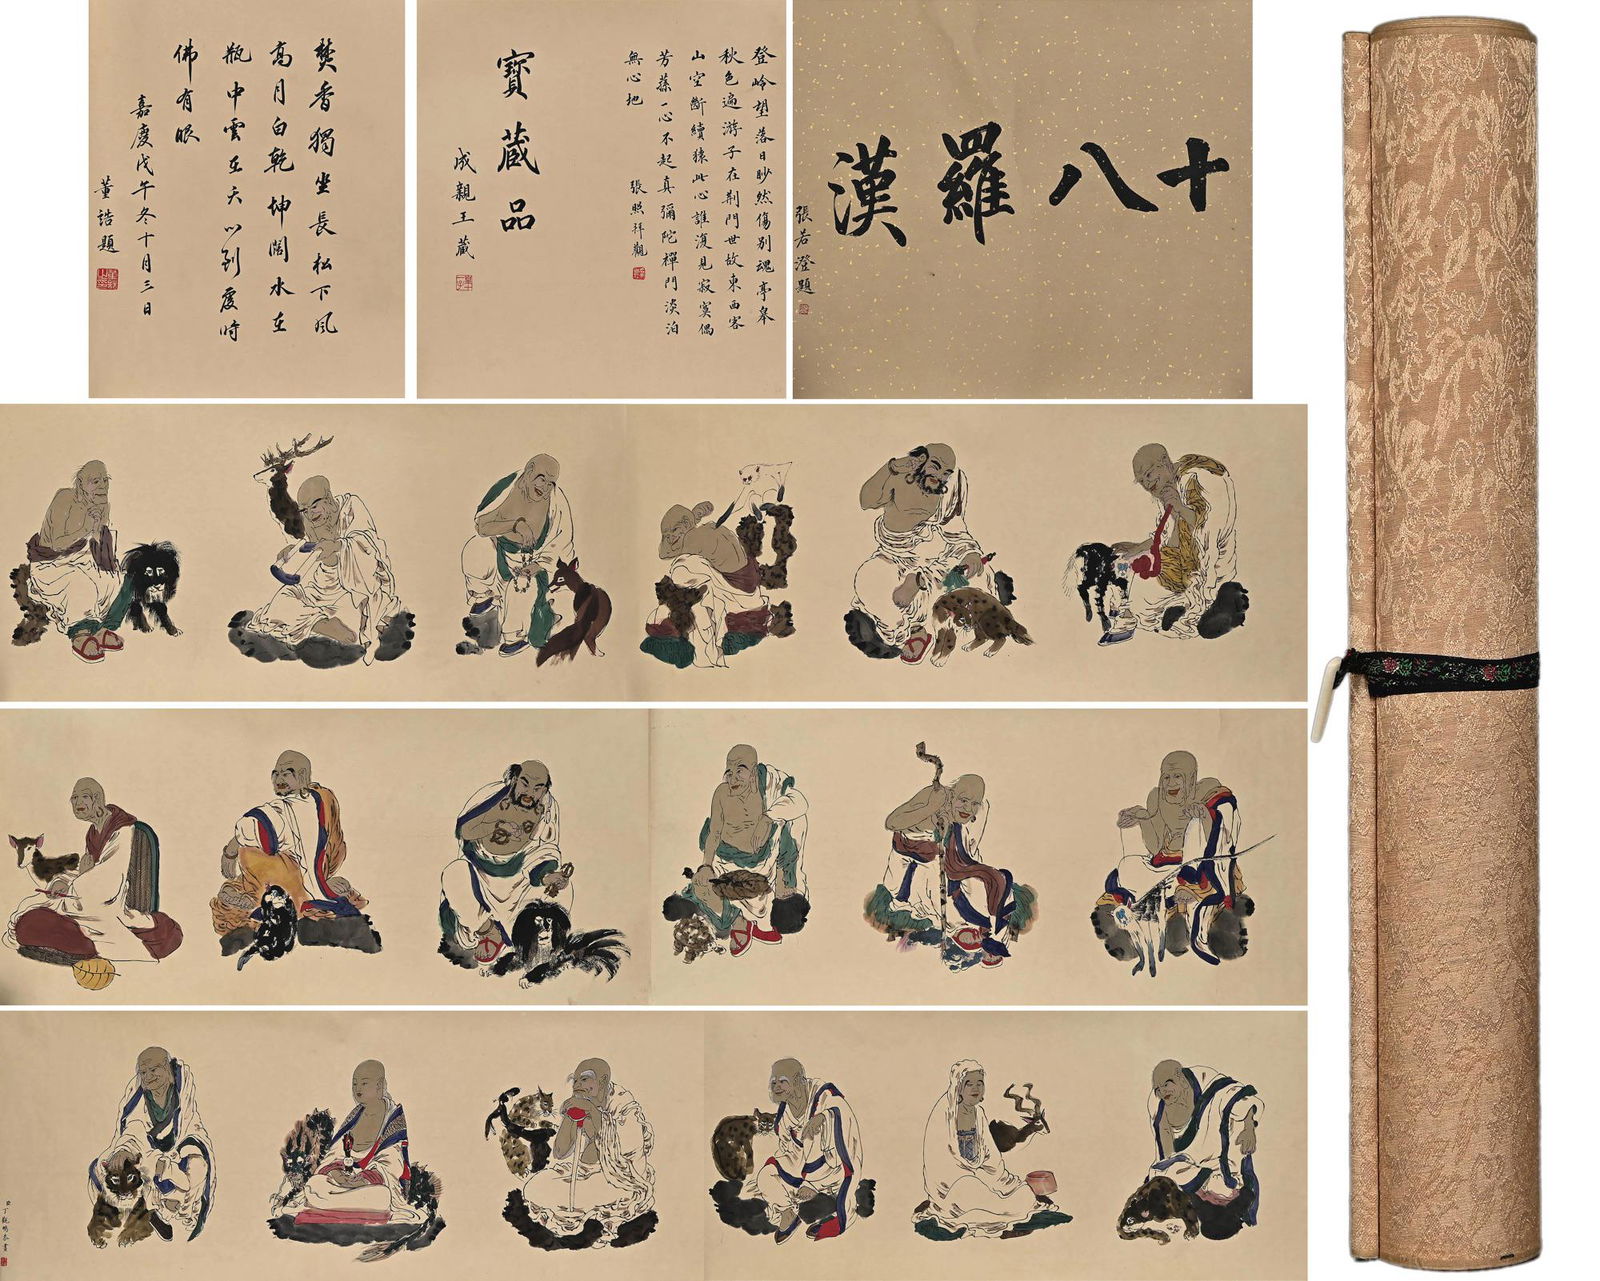 十八羅漢
張若澄題
登岭望落日眇然傷別魂亭皋
秋色遍游子在荆門世故東西客
山空斷續猿此心誰復見寂寞偶
芳蓀一心不起真彌陀禪門淡泊
無心地
張照拜觀
寶蔵品
成親王蔵
焚香獨坐長松下風
高月白乾坤闊水在
瓶中雲在天以到處時
佛有眼
嘉慶戊午冬十月三日
董誥題
丁觀鵬恭畫